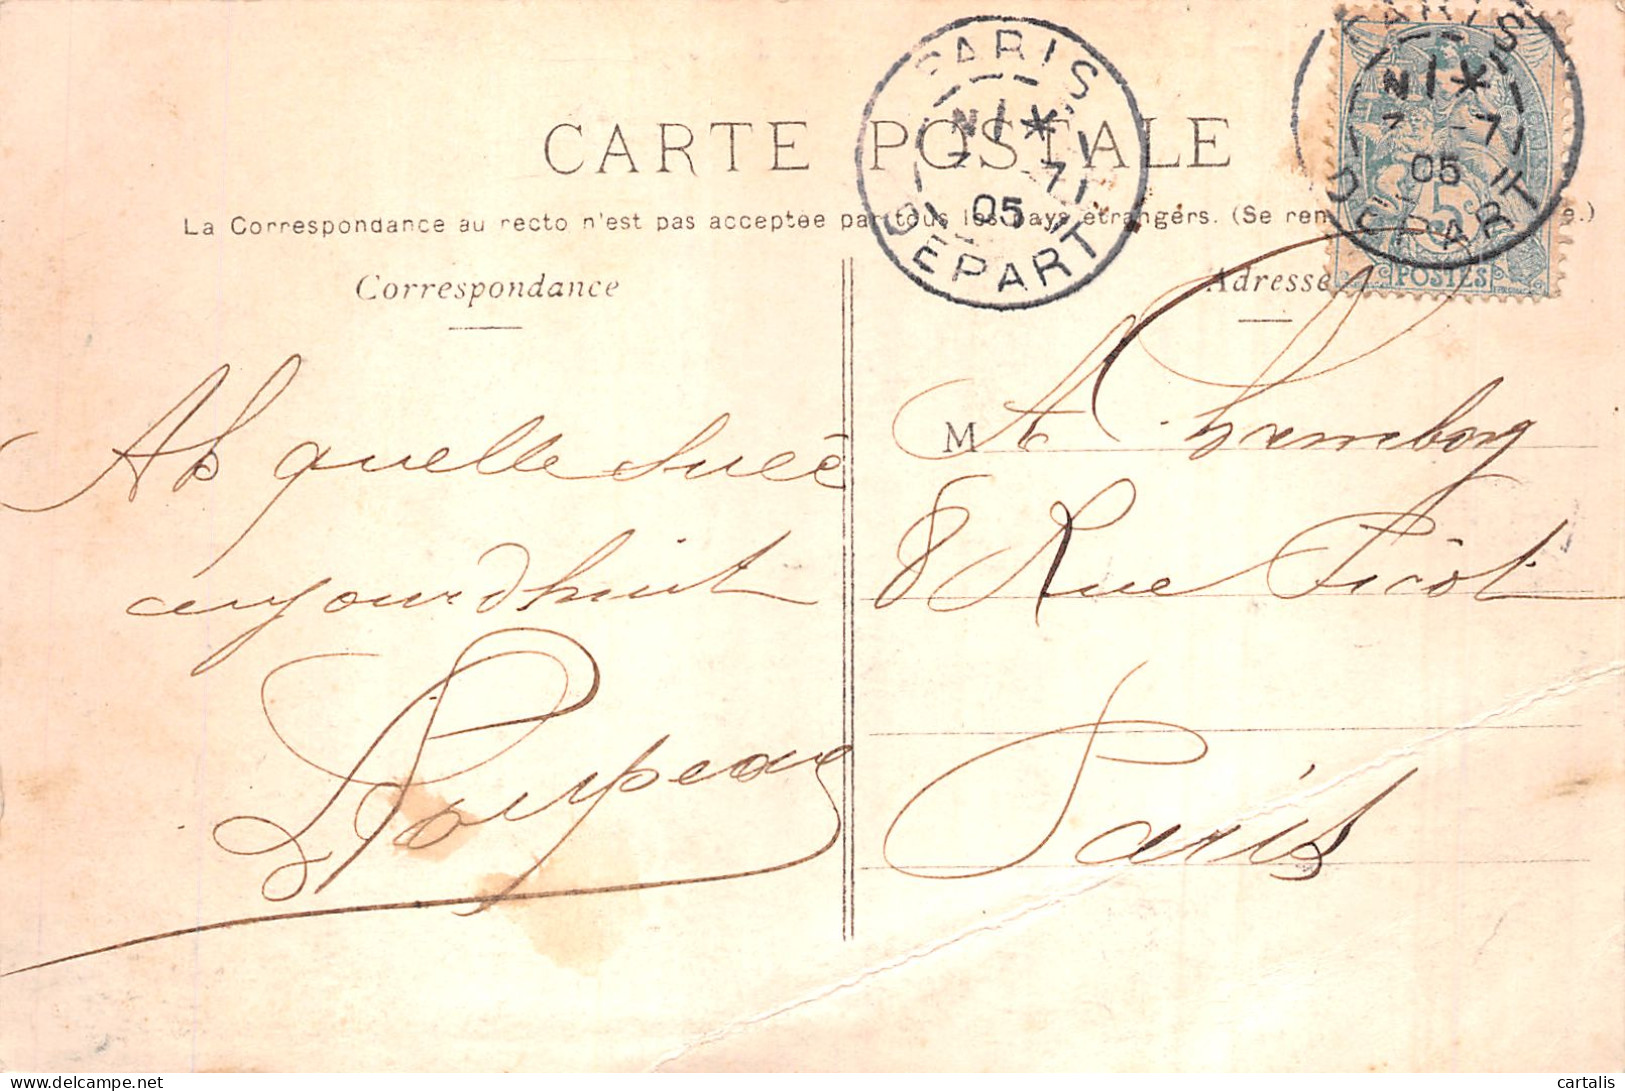 CARTE POSTALE
La Correspondance au recto n'est pas acceptée par tous les pays étrangers. (Se ren
Correspondance
Adresse
PARIS
N 1 *
7 -7
05
DEPART
PARIS
N 1 *
7 -7
05
DEPART
5
POSTES
Ah quelle suée
aujourdhuit
M A.
8 Rue Picot
Paris
cartalis delcampe.net